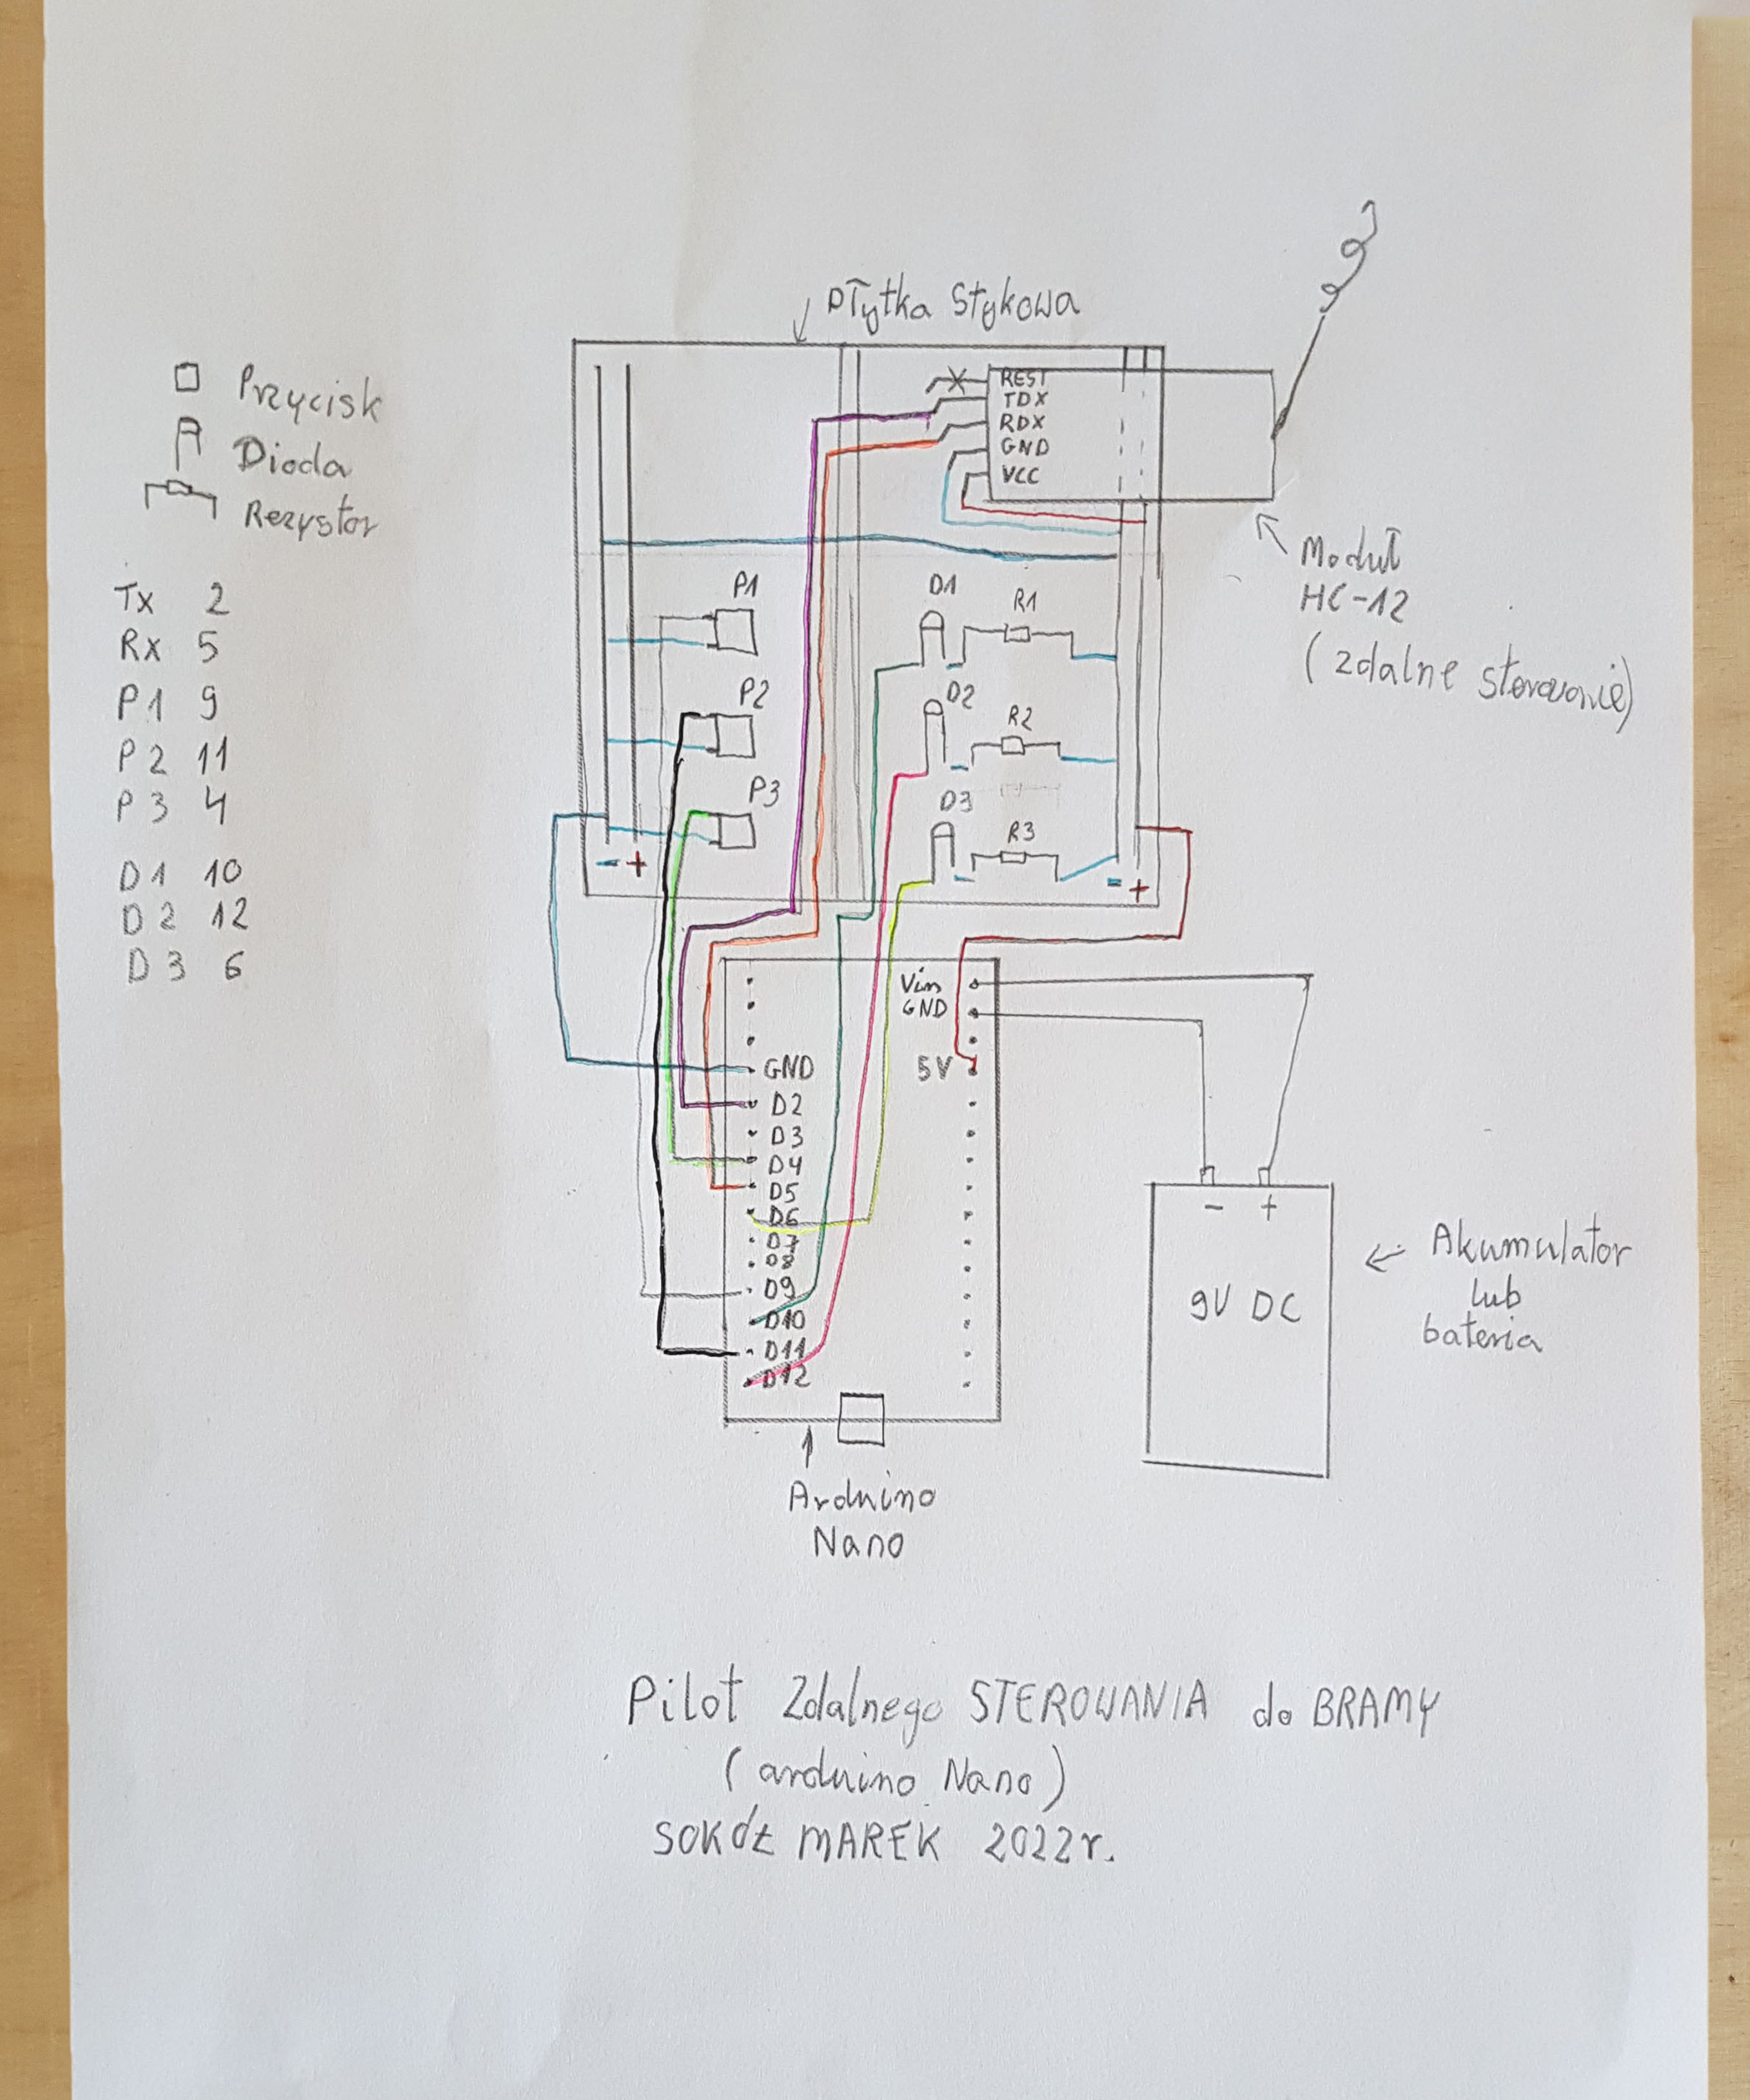 Płytka Stykowa
Przycisk
Dioda
Rezystor
Tx 2
Rx 5
P1 9
P2 11
P3 4
D1 10
D2 12
D3 6
REST
TDX
RDX
GND
VCC
Moduł
HC-12
(zdalne sterowanie)
P1
D1
R1
P2
D2
R2
P3
D3
R3
- +
- +
Vin
GND
5V
GND
D2
D3
D4
D5
D6
D7
D8
D9
D10
D11
D12
- +
9V DC
Akumulator
lub
bateria
Arduino
Nano
Pilot Zdalnego STEROWANIA do BRAMY
(arduino Nano)
SOKÓŁ MAREK 2022r.